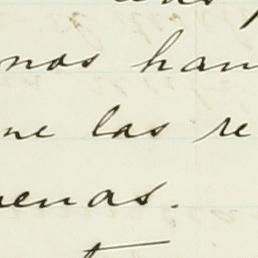 nos han
ne las re
uenas.